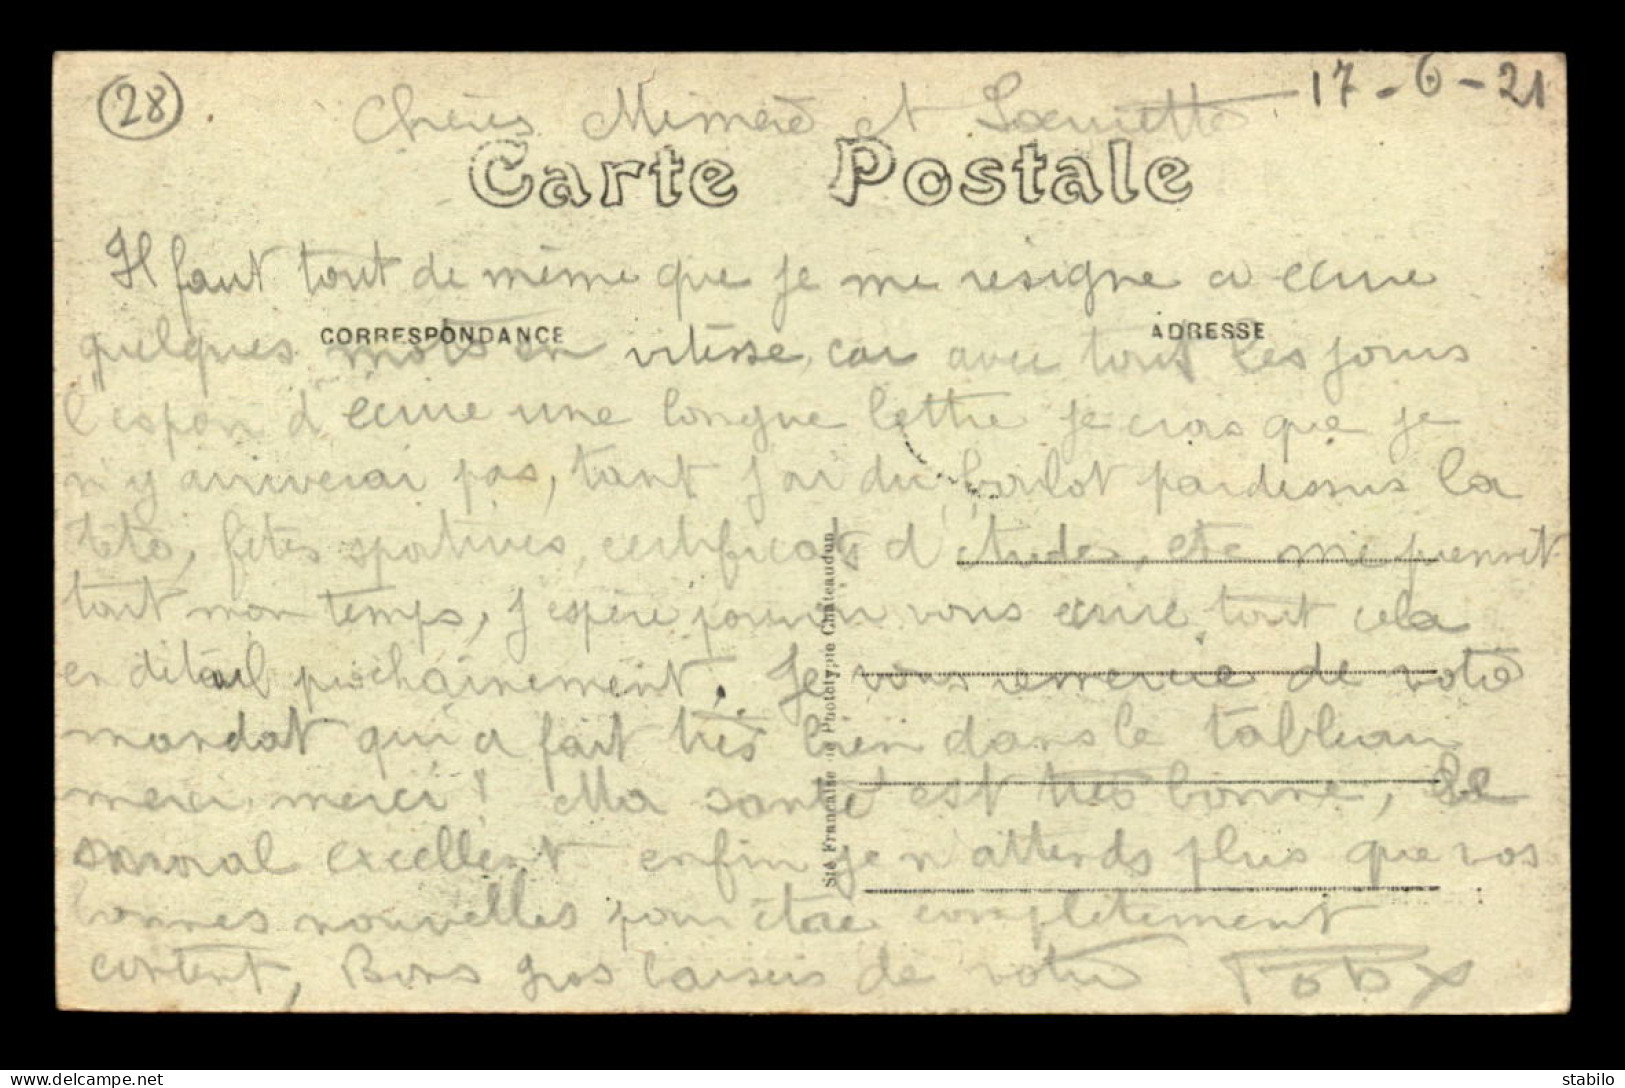 28
17-6-21
Chères Mémère et Sœurette
Carte Postale
Il faut tout de même que je me resigne a ecrire
CORRESPONDANCE
ADRESSE
quelques mots en vitesse, car avec tous les jours
l'espoir d'ecrire une longue lettre je crois que je
n'y arriverai pas, tant j'ai du boulot pardessus la
tête, fêtes sportives, certificat d'études, etc me prennent
tout mon temps, j'espère pouvoir vous ecrire tout cela
en détail prochainement. Je vous remercie de votre
mandat qui a fait très bien dans le tableau
merci, merci! Ma santé est très bonne, le
moral excellent enfin je n'attends plus que vos
bonnes nouvelles pour être complètement
content, Bons gros baisers de votre
Sté Française de Phototypie Châteaudun